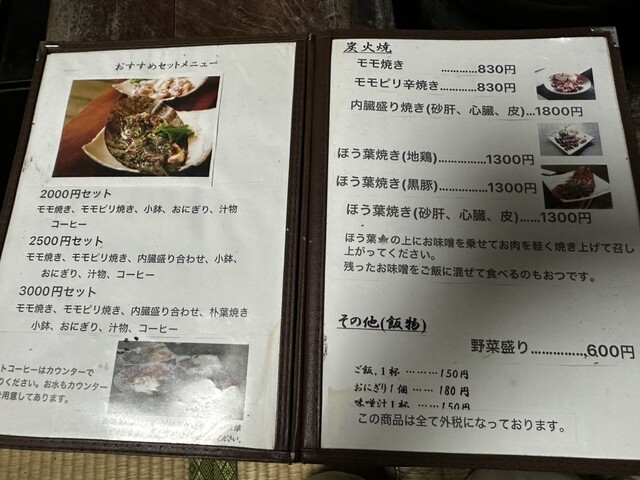 おすすめセットメニュー
2000円セット
モモ焼き、モモピリ焼き、小鉢、おにぎり、汁物
コーヒー
2500円セット
モモ焼き、モモピリ焼き、内臓盛り合わせ、小鉢、
おにぎり、汁物、コーヒー
3000円セット
モモ焼き、モモピリ焼き、内臓盛り合わせ、朴葉焼き
小鉢、おにぎり、汁物、コーヒー
トコーヒーはカウンターで
りください。お水もカウンター
用意してあります。
ください。
炭火焼
モモ焼き …………830円
モモピリ辛焼き…………830円
内臓盛り焼き(砂肝、心臓、皮)…1800円
ほう葉焼き(地鶏)……………1300円
ほう葉焼き(黒豚)……………1300円
ほう葉焼き(砂肝、心臓、皮)…1300円
ほう葉🍁の上にお味噌を乗せてお肉を軽く焼き上げて召し
上がってください。
残ったお味噌をご飯に混ぜて食べるのもおつです。
その他(飯物)
野菜盛り……………,600円
ご飯,1杯 …… 150円
おにぎり1個 …… 180円
味噌汁1杯 …… 150円
この商品は全て外税になっております。